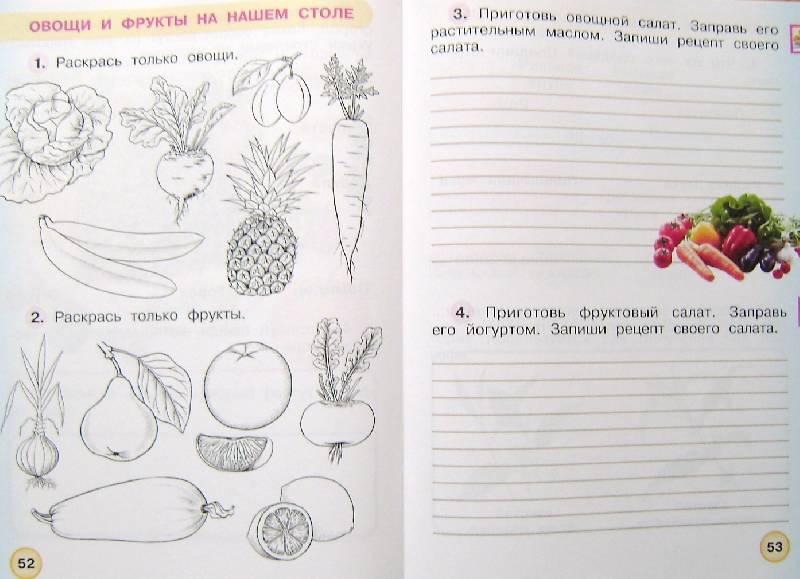 ОВОЩИ И ФРУКТЫ НА НАШЕМ СТОЛЕ
1. Раскрась только овощи.
2. Раскрась только фрукты.
52
3. Приготовь овощной салат. Заправь его
растительным маслом. Запиши рецепт своего
салата.
4. Приготовь фруктовый салат. Заправь
его йогуртом. Запиши рецепт своего салата.
53